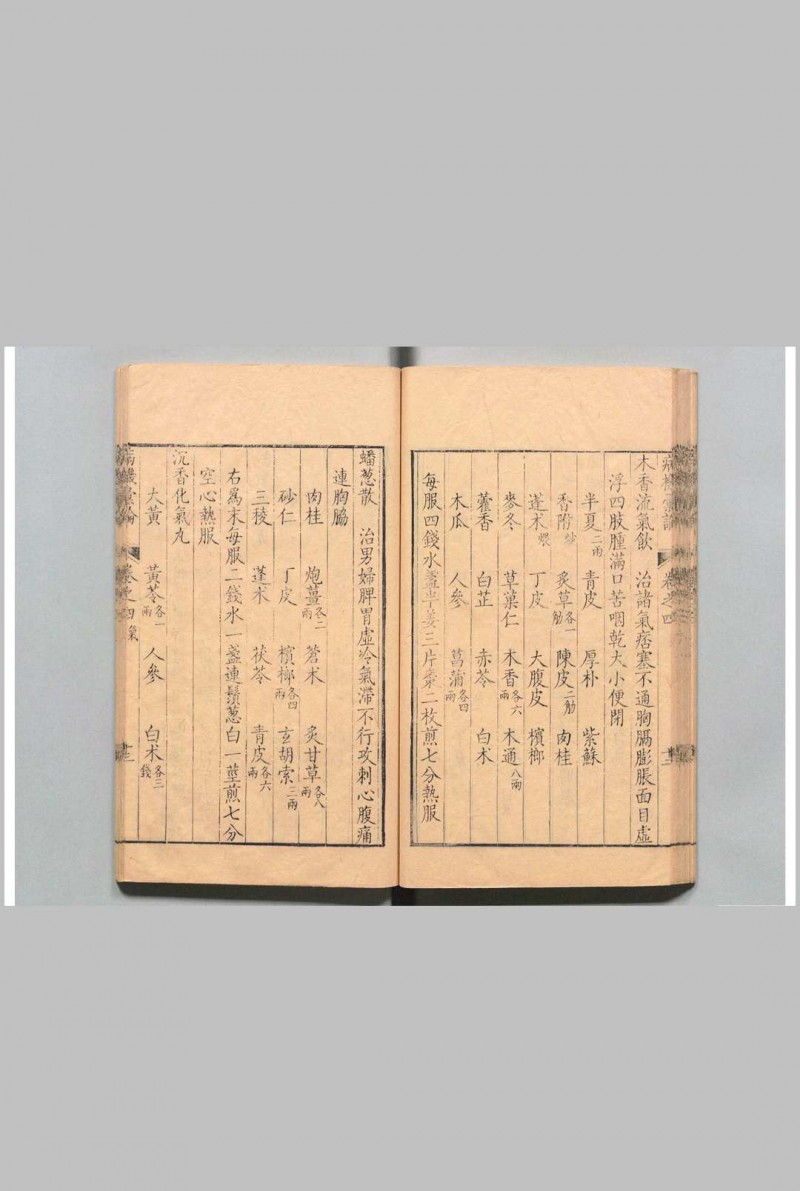 卷之四
木香流氣飲　治諸氣痞塞不通胸膈膨脹面目虛
浮四肢腫滿口苦咽乾大小便閉
半夏二兩　青皮　厚朴　紫蘇
香附炒　炙草各一觔　陳皮二觔　肉桂
蓬朮煨　丁皮　大腹皮　檳榔
麥冬　草菓仁　木香各六兩　木通八兩
藿香　白芷　赤苓　白朮
木瓜　人參　菖蒲各四兩
每服四錢水盞半姜三片棗二枚煎七分熱服
蟠葱散　治男婦脾胃虛冷氣滯不行攻刺心腹痛
連胸脇
肉桂　炮薑各二兩　蒼朮　炙甘草各八兩
砂仁　丁皮　檳榔各四兩　玄胡索三兩
三稜　蓬朮　茯苓　青皮各六兩
右爲末每服二錢水一盞連鬚葱白一莖煎七分
空心熱服
沉香化氣丸
大黃　黃芩各一兩　人參　白朮各三錢
卷之四氣